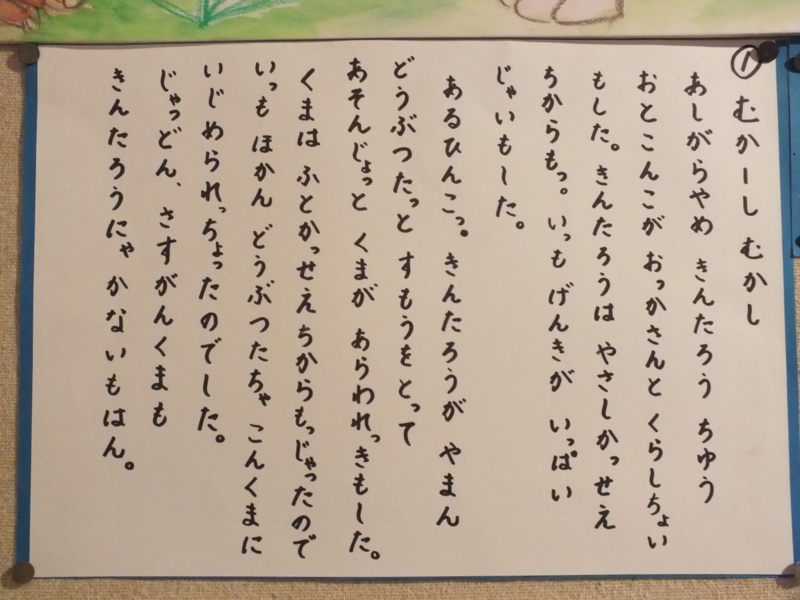 ① むかーし むかし
あしがらやめ きんたろう ちゅう
おとこんこが おっかさんと くらしちょい
もした。きんたろうは やさしかっせえ
ちからもっ。いっも げんきが いっぱい
じゃいもした。
あるひんこっ。きんたろうが やまん
どうぶつたっと すもうをとって
あそんじょっと くまが あらわれっきもした。
くまは ふとかっせえちからもっじゃったので
いっも ほかん どうぶつたちゃ こんくまに
いじめられっちょったのでした。
じゃっどん、さすがんくまも
きんたろうにゃ かないもはん。